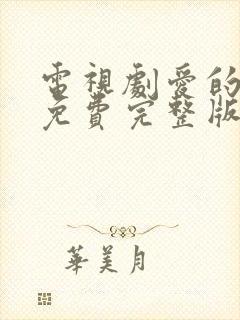 電視劇愛的
免費完整版
華美月